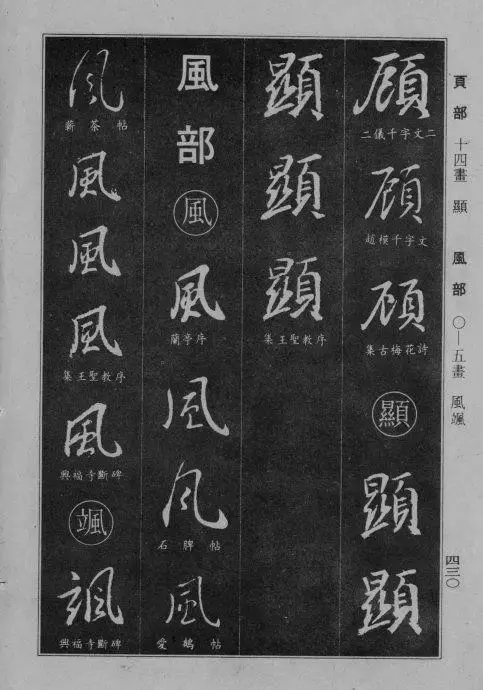 頁部 十四畫 顯 風部 〇—五畫 風颯
四三〇
顧
二儀千字文二
顧
趙模千字文
顧
集古梅花詩
顯
顯
顯
顯
顯
顯
集王聖教序
風部
風
風
蘭亭序
風
風
石牌帖
風
愛鵝帖
風
薪茶帖
風
風
風
集王聖教序
風
興福寺斷碑
颯
颯
興福寺斷碑